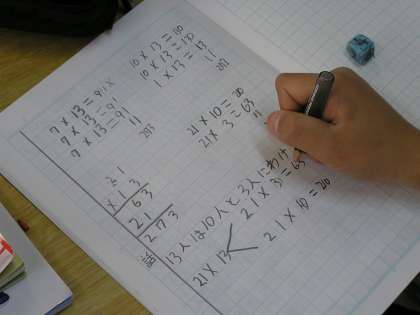 7×13=91
7×13=91
7×13=91
273
10×13=130
10×13=130
1×13=13
273
21×10=210
21×3=63
21
×13
63
21
273
話
13人は10人と3人にわけ
21×13
21×3=63
21×10=210